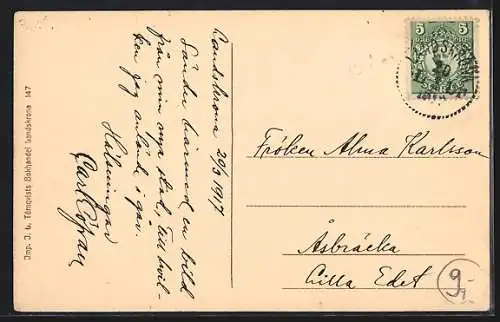 Landskrona 20/3 1917
Sänder härmed en bild
från min nya stad, till hvil-
ken jag anlände i går.
Hälsningar
Carl
Fröken Alma Karlsson
Åsbräcka
Lilla Edet
5 5
LANDSKRONA
Imp. J. L. Törnqvists Bokhandel Landskrona 147
9.-